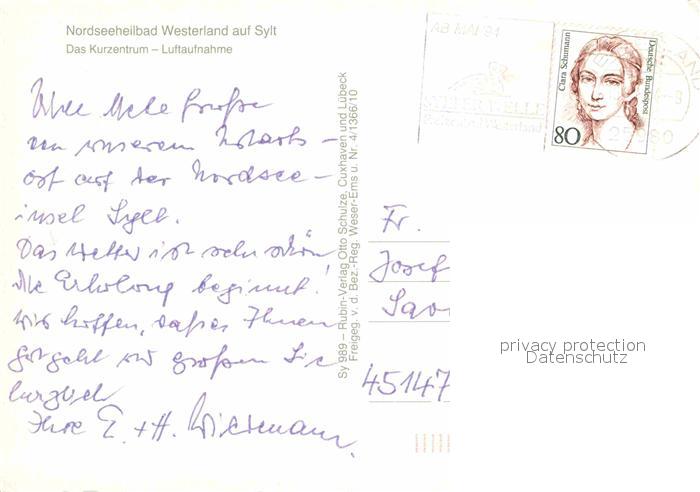 Nordseeheilbad Westerland auf Sylt
Das Kurzentrum – Luftaufnahme
liebe Grüße
von unserem Urlaubs-
ort auf der Nordsee-
insel Sylt.
Das Wetter ist sehr schön
die Erholung beginnt!
Wir hoffen, daß es Ihnen
gut geht und grüßen Sie
herzlich
Ihre E. + H.
Sy 989 – Rubin-Verlag Otto Schulze, Cuxhaven und Lübeck
Freigeg. v. d. Bez.-Reg. Weser-Ems u. Nr. 4/1366/10
AB MAI '94
SYLTER WELLE
Westerland
Clara Schumann
Deutsche Bundespost
80
25980
Fr.
Josef
45147
privacy protection
Datenschutz